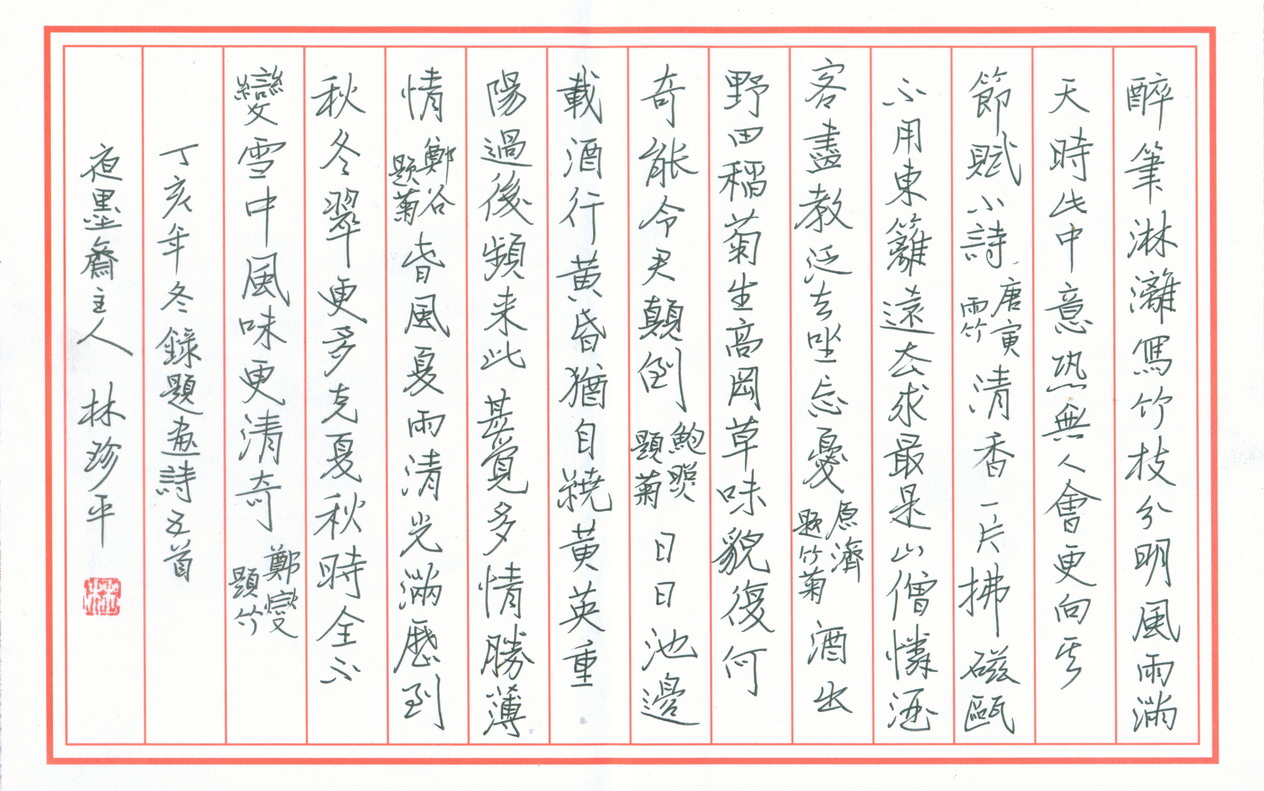 醉筆淋灕寫竹枝分明風雨滿
天時此中意恐無人會更向其
節賦小詩 唐寅雨竹 清香一片拂磁甌
不用東籬遠去求最是山僧憐酒
客盡教泛去坐忘憂 原濟題竹菊 酒出
野田稻菊生高岡草味貌復何
奇能令君顛倒 鮑照題菊 日日池邊
載酒行黃昏猶自繞黃英重
陽過後頻来此甚覺多情勝薄
情 鄭谷題菊 春風夏雨清光滿歷到
秋冬翠更多克夏秋時全不
變雪中風味更清奇 鄭燮題竹
丁亥年冬錄題畫詩五首
夜墨齋主人 林珍平
林